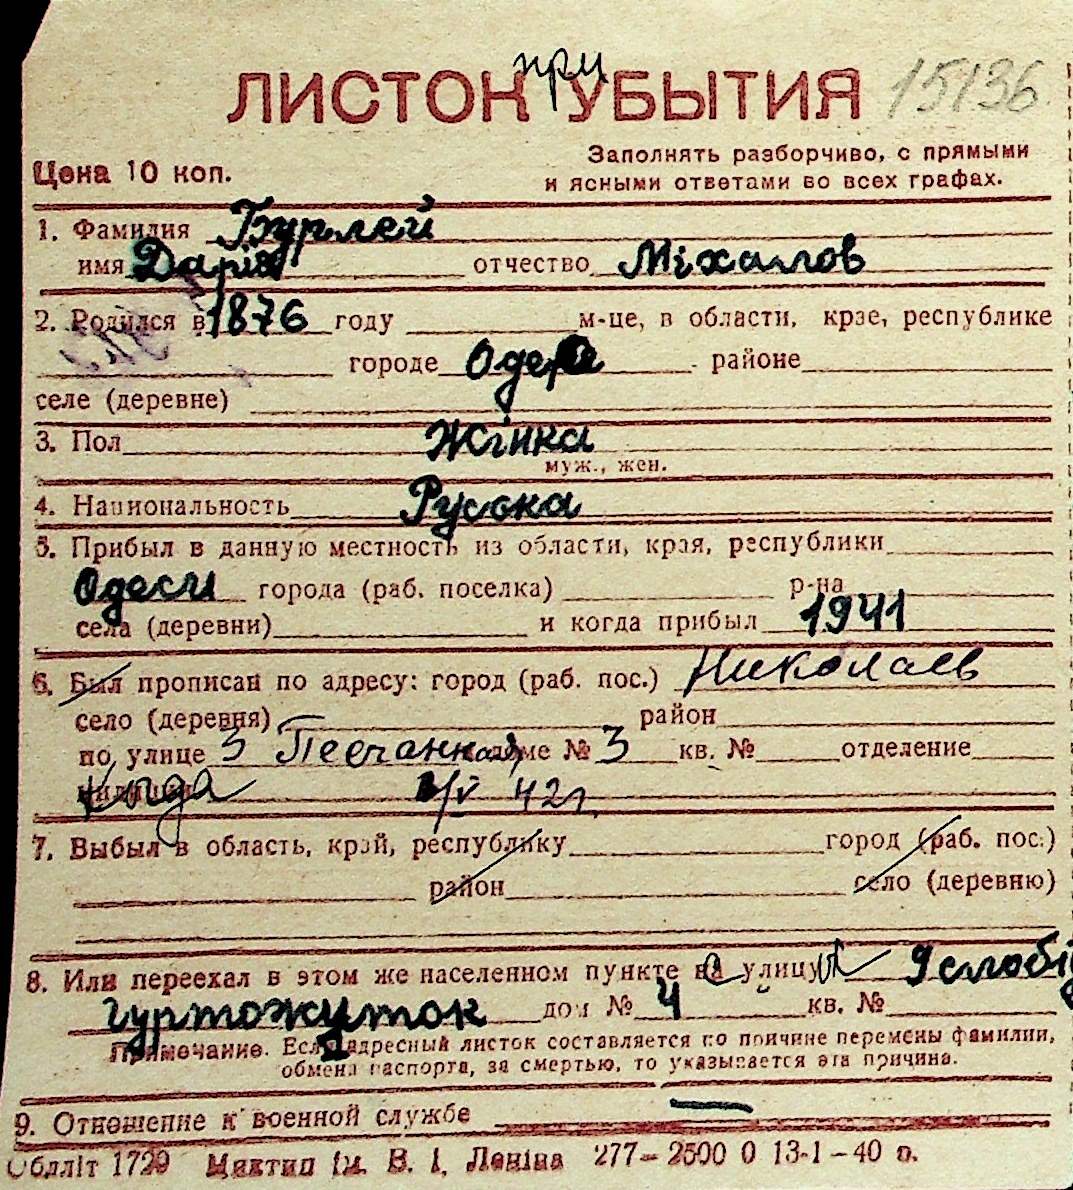 при
ЛИСТОК УБЫТИЯ 15136
Заполнять разборчиво, с прямыми
Цена 10 коп. и ясными ответами во всех графах.
1. Фамилия Бурлей
имя Дарія отчество Міхайлов
2. Родился в 1876 году м-це, в области, крае, республике
городе Одеса районе
селе (деревне)
3. Пол Жінка
муж., жен.
4. Национальность Руська
5. Прибыл в данную местность из области, края, республики
Одеси города (раб. поселка) р-на
села (деревни) и когда прибыл 1941
6. Был прописан по адресу: город (раб. пос.) Николаев
село (деревня) район
по улице 3 Песчанная доме № 3 кв. № отделение
милиции 42 г.
7. Выбыл в область, край, республику город (раб. пос.)
район село (деревню)
8. Или переехал в этом же населенном пункте на улицу
гуртожиток дом № 4 кв. №
Примечание. Если адресный листок составляется по причине перемены фамилии,
обмена паспорта, за смертью, то указывается эта причина.
9. Отношение к военной службе —
Обллiт 1729 ім. В. І. Леніна 277—2500 0 13-1-40 р.